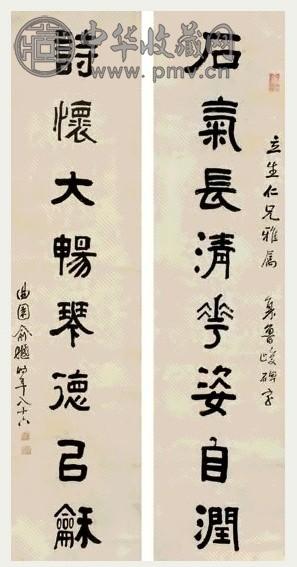 中华收藏网
www.pmv.cn
立生仁兄雅屬 集魯峻碑字
石氣長清華姿自潤
詩懷大暢琴德已龢
曲園俞樾時年八十六